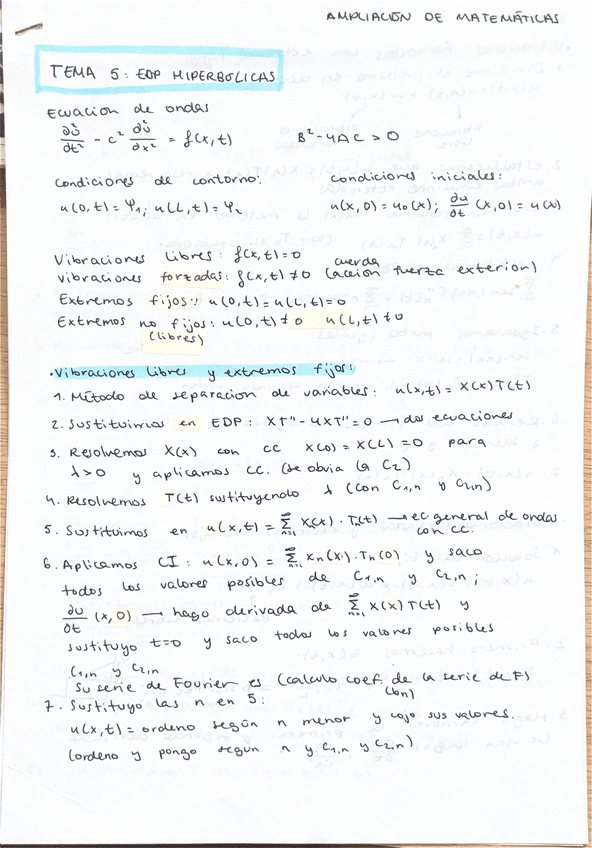 AMPLIACIÓN DE MATEMÁTICAS
TEMA 5: EDP HIPERBÓLICAS
Ecuación de ondas
∂²u/∂t² - c² ∂²u/∂x² = f(x,t)    B²-4AC > 0
Condiciones de contorno:    condiciones iniciales:
u(0,t) = φ₁; u(L,t) = φ₂    u(x,0) = u₀(x); ∂u/∂t (x,0) = u(x)
Vibraciones libres: f(x,t)=0
vibraciones forzadas: f(x,t) ≠ 0 (acción fuerza exterior)
cuerda
Extremos fijos: u(0,t) = u(L,t) = 0
Extremos no fijos: u(0,t) ≠ 0 u(L,t) ≠ 0
(libres)
·Vibraciones libres y extremos fijos:
1. Método de separación de variables: u(x,t) = X(x)T(t)
2. Sustituimos en EDP: XT" - 4XT" = 0 → dos ecuaciones
3. Resolvemos X(x) con CC X(0) = X(L) = 0 para
λ>0 y aplicamos CC. (se obvia la C₂)
4. Resolvemos T(t) sustituyendo λ (con C₁,n y C₂,n)
5. Sustituimos en u(x,t) = ∑ₙ₌₁^∞ X(x) · T(t) → ec general de ondas
con CC.
6. Aplicamos CI: u(x,0) = ∑ₙ₌₁^∞ Xn(x) · Tn(0) y saco
todos los valores posibles de C₁,n y C₂,n;
∂u/∂t (x,0) → hago derivada de ∑ₙ₌₁^∞ X(x)T(t) y
sustituyo t=0 y saco todos los valores posibles
C₁,n y C₂,n
Su serie de Fourier es (calculo coef. de la serie de F)
(bn)
7. Sustituyo las n en 5:
u(x,t) = ordeno según n menor y cojo sus valores.
(ordeno y pongo según n y C₁,n y C₂,n)